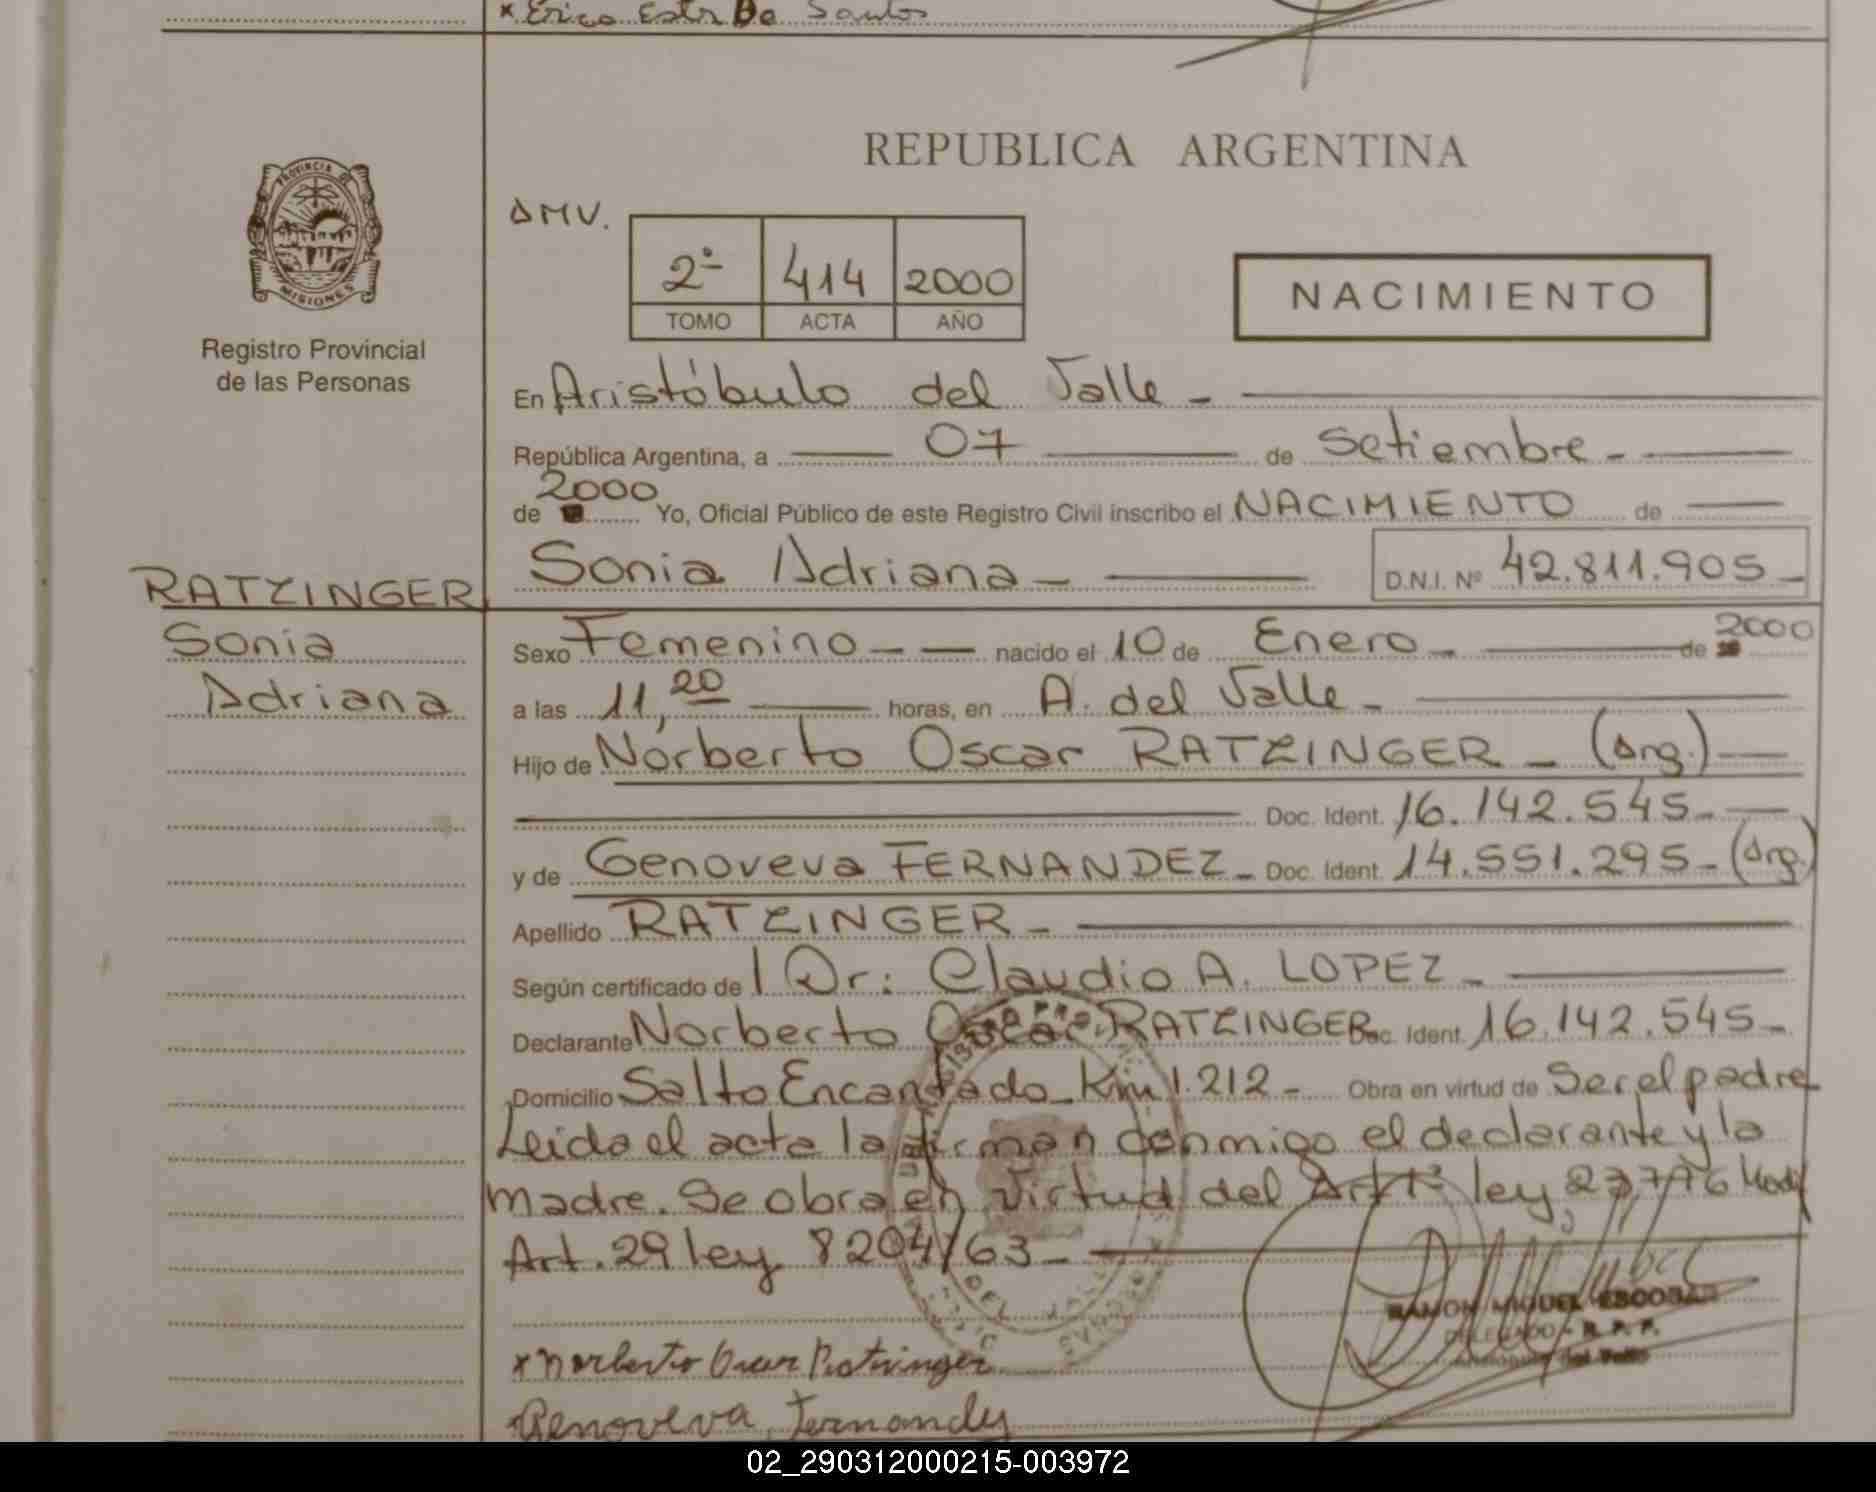 x Erico Estr De Santos
REPUBLICA ARGENTINA
PROVINCIA DE
MISIONES
Registro Provincial
de las Personas
AMV.
2º 414 2000
TOMO ACTA AÑO
NACIMIENTO
En Aristóbulo del Valle -
República Argentina, a 07 de Setiembre -
de 2000 Yo, Oficial Público de este Registro Civil inscribo el NACIMIENTO de
RATZINGER Sonia Adriana - D.N.I. Nº 42.811.905 -
Sonia
Adriana
Sexo Femenino - nacido el 10 de Enero - de 2000
a las 11,20 horas, en A. del Valle -
Hijo de Norberto Oscar RATZINGER - (Arg.)
Doc. Ident. 16.142.545 -
y de Genoveva FERNANDEZ - Doc. Ident. 14.551.295 - (Arg.)
Apellido RATZINGER -
Según certificado del Dr: Claudio A. LOPEZ -
Declarante Norberto Oscar RATZINGER Doc. Ident. 16.142.545 -
Domicilio Salto Encantado - Km 1.212 - Obra en virtud de Ser el padre
Leida el acta la firman conmigo el declarante y la
madre. Se obra en virtud del Art 1º ley
Art. 29 ley 8204/63 -
RAMON MIGUEL ESCOBAR
DELEGADO - R. P. P.
Aristóbulo del Valle
x Norberto Oscar Ratzinger
Genoveva Fernandez
02_290312000215-003972